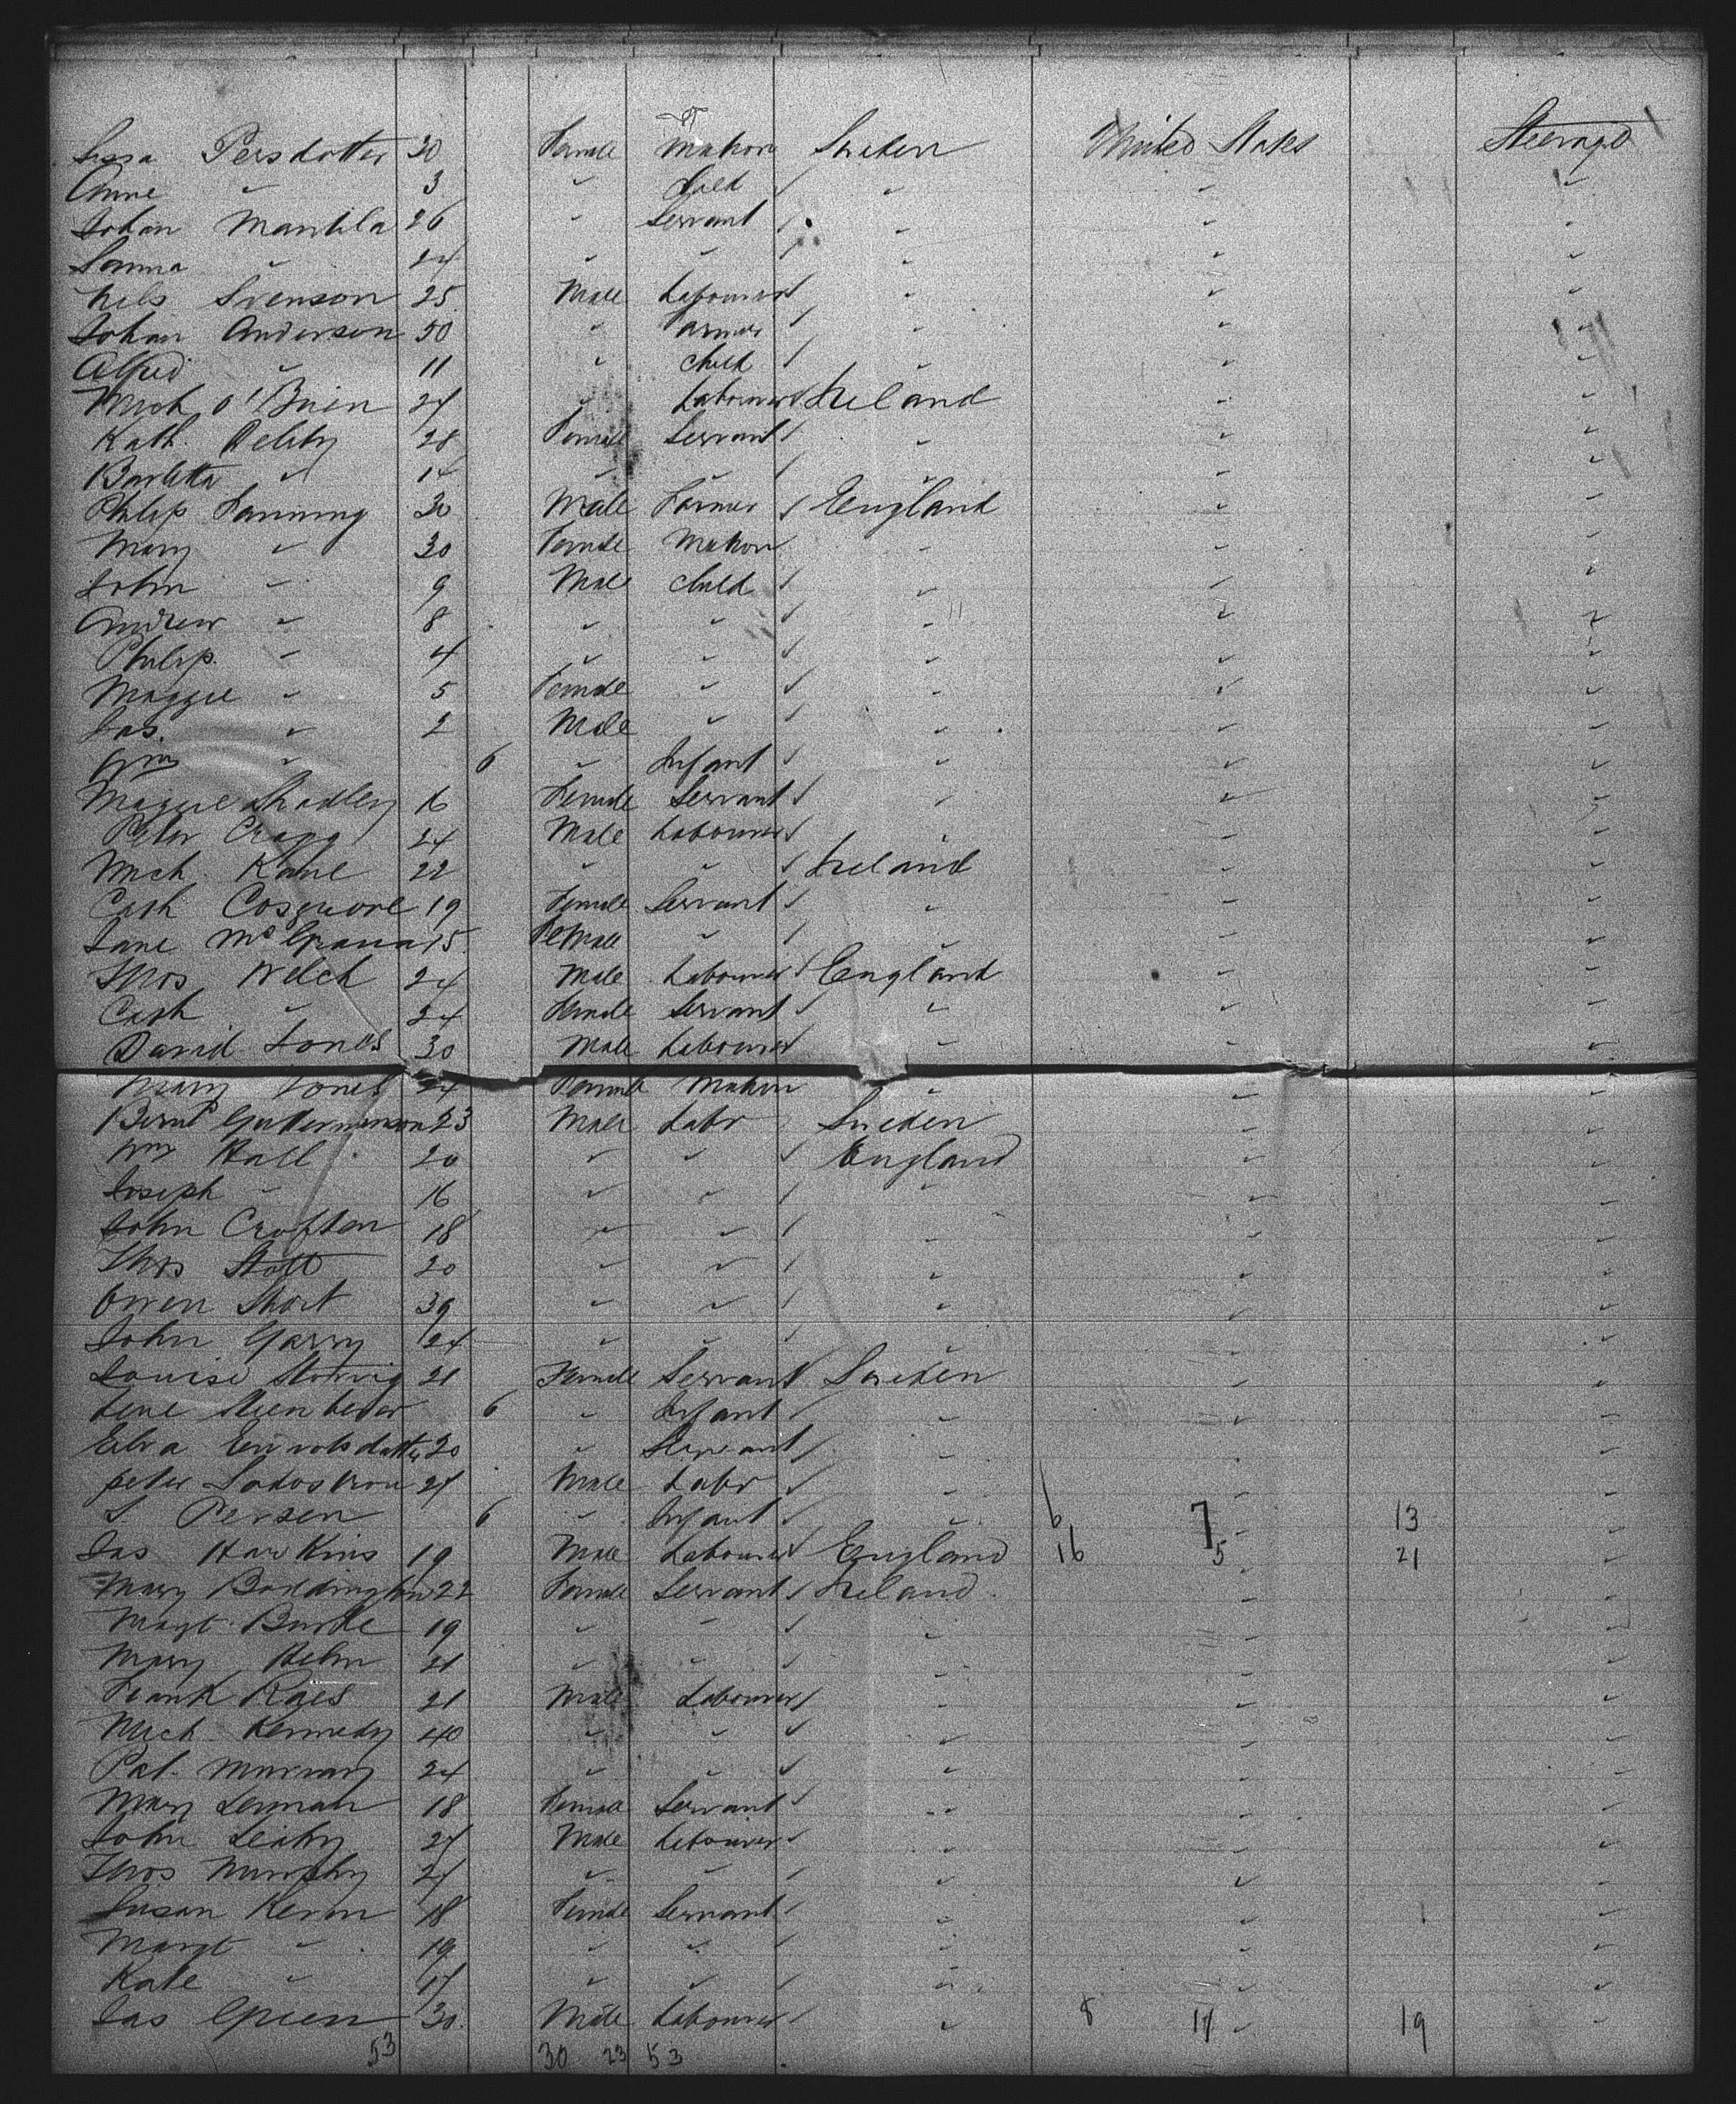 Persdotter 30 Female Matron Sweden United States Steerage
Anne " 3 " Child " " "
Johan Mantila 26 " Servant " " "
Sanna " 24 " " " " "
Nels Svenson 25 Male Labourer " " "
Johan Anderson 50 " Farmer " " "
Alfred " 11 " Child " " "
Mich O'Brien 24 " Labourer Ireland " "
Kath. 28 Female Servant " " "
" 14 " " " " "
Philip Fanning 30 Male Farmer England " "
Mary " 30 Female Matron " " "
John " 9 Male Child " " "
Andrew " 8 " " " " "
Philip " 4 " " " " "
Maggie " 5 Female " " " "
Jas. " 2 Male " " " "
Wm " 6 " Infant " " "
Maggie 16 Female Servant " " "
Peter Cragg 24 Male Labourer " " "
Mich. Kane 22 " " Ireland " "
Cath Cosgrove 19 Female Servant " " "
Jane 15 Female " " " "
Thos Welch 24 Male Labourer England " "
Cath " 24 Female Servant " " "
David Jones 30 Male Labourer " " "
Mary Jones 24 Female Matron " " "
23 Male Labr Sweden " "
Wm Hall 20 " " England " "
Joseph " 16 " " " " "
John Crofton 18 " " " " "
Thos Stott 20 " " " " "
Owen Short 39 " " " " "
John Garry 24 " " " " "
Louise 21 Female Servant Sweden " "
Lene 6 " Infant " " "
20 " Servant " " "
Peter 24 Male Labr " " "
S Persen 6 " Infant " 6 7 " 13 "
Jas Hawkins 19 Male Labourer England 16 5 21 "
Mary Boddington 22 Female Servant Ireland " "
Magt Burke 19 " " " " "
Mary 21 " " " " "
Frank 21 Male Labourer " " "
Mich Kennedy 40 " " " " "
Pat. Murray 24 " " " " "
Mary 18 Female Servant " " "
John Leahy 24 Male Labourer " " "
Thos Murphy 24 " " " " "
Susan 18 Female Servant " " "
Margt " 19 " " " " "
Kate " 17 " " " " "
Jas Green 30 Male Labourer " 8 11 " 19 "
53 30 23 53